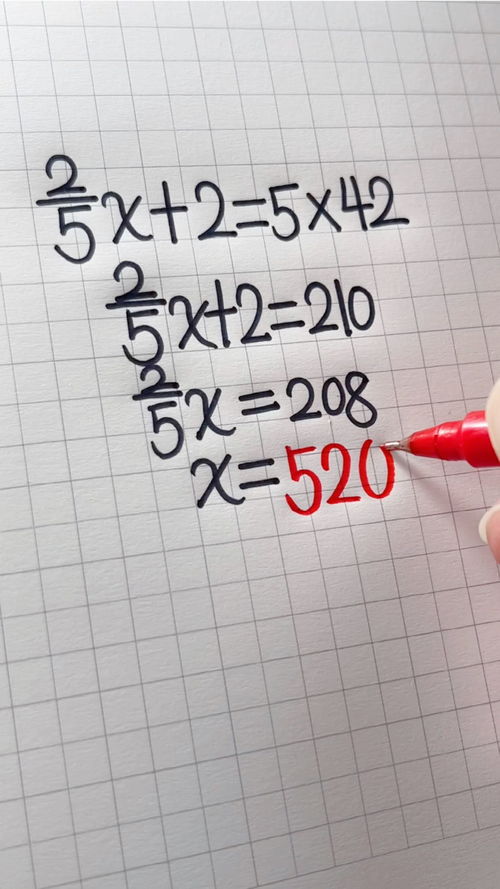 2/5x+2=5×42
2/5x+2=210
2/5x=208
x=520